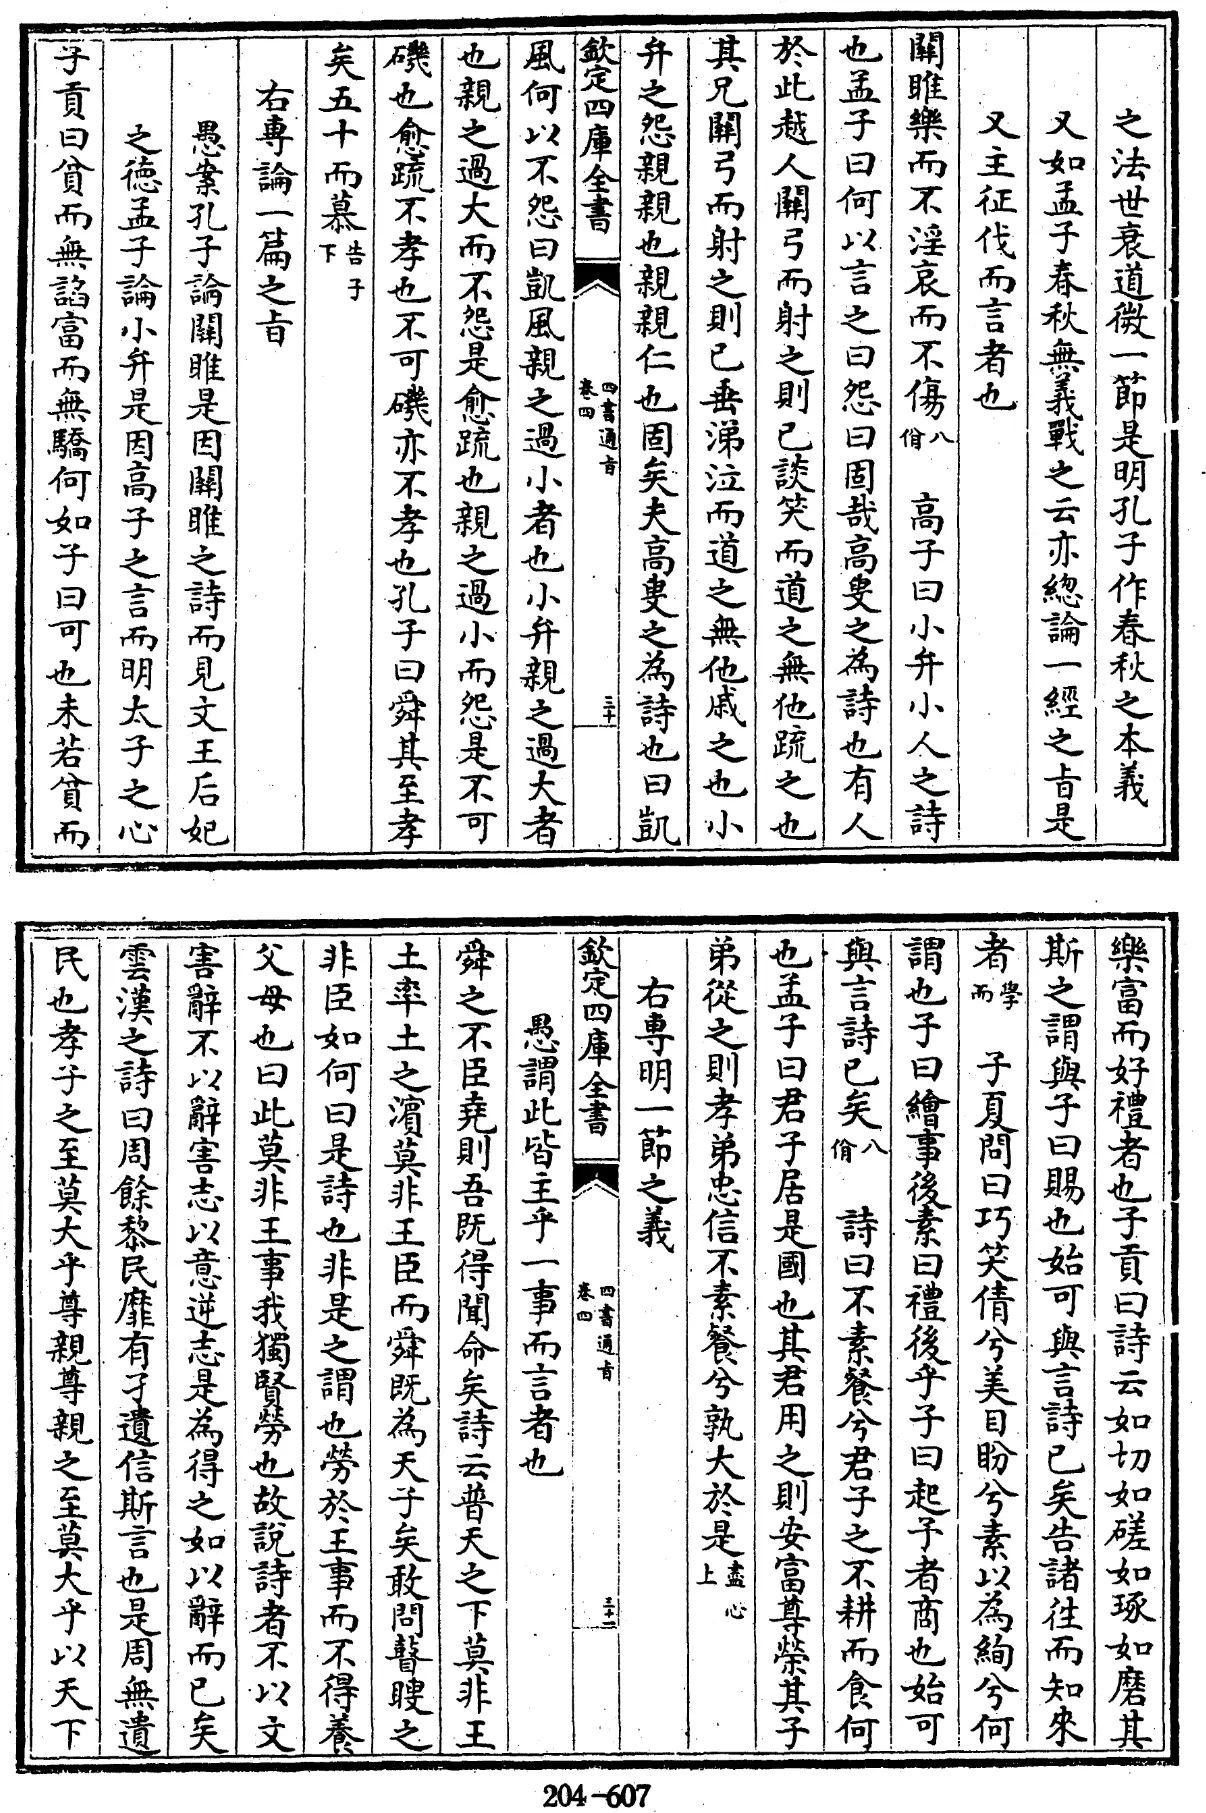 之法世衰道微一節是明孔子作春秋之本義
又如孟子春秋無義戰之云亦緫論一經之㫖是
又主征伐而言者也
關雎樂而不淫哀而不傷八佾　高子曰小弁小人之詩
也孟子曰何以言之曰怨曰固哉高叟之為詩也有人
於此越人關弓而射之則已談笑而道之無他疏之也
其兄關弓而射之則已垂涕泣而道之無他戚之也小
弁之怨親親也親親仁也固矣夫高叟之為詩也曰凱
欽定四庫全書
四書通㫖
卷四
三十
風何以不怨曰凱風親之過小者也小弁親之過大者
也親之過大而不怨是愈疏也親之過小而怨是不可
磯也愈疏不孝也不可磯亦不孝也孔子曰舜其至孝
矣五十而慕告子下
右專論一篇之㫖
愚案孔子論關雎是因關雎之詩而見文王后妃
之徳孟子論小弁是因高子之言而明太子之心
子貢曰貧而無諂富而無驕何如子曰可也未若貧而
樂富而好禮者也子貢曰詩云如切如磋如琢如磨其
斯之謂與子曰賜也始可與言詩已矣告諸往而知來
者學而　子夏問曰巧笑倩兮美目盼兮素以為絢兮何
謂也子曰繪事後素曰禮後乎子曰起予者商也始可
與言詩已矣八佾　詩曰不素餐兮君子之不耕而食何
也孟子曰君子居是國也其君用之則安富尊榮其子
弟從之則孝弟忠信不素餐兮孰大於是盡心上
右專明一節之義
欽定四庫全書
四書通㫖
卷四
三十一
愚謂此皆主乎一事而言者也
舜之不臣堯則吾既得聞命矣詩云普天之下莫非王
土率土之濱莫非王臣而舜既為天子矣敢問瞽瞍之
非臣如何曰是詩也非是之謂也勞於王事而不得養
父母也曰此莫非王事我獨賢勞也故說詩者不以文
害辭不以辭害志以意逆志是為得之如以辭而已矣
雲漢之詩曰周餘黎民靡有孑遺信斯言也是周無遺
民也孝子之至莫大乎尊親尊親之至莫大乎以天下
204-607